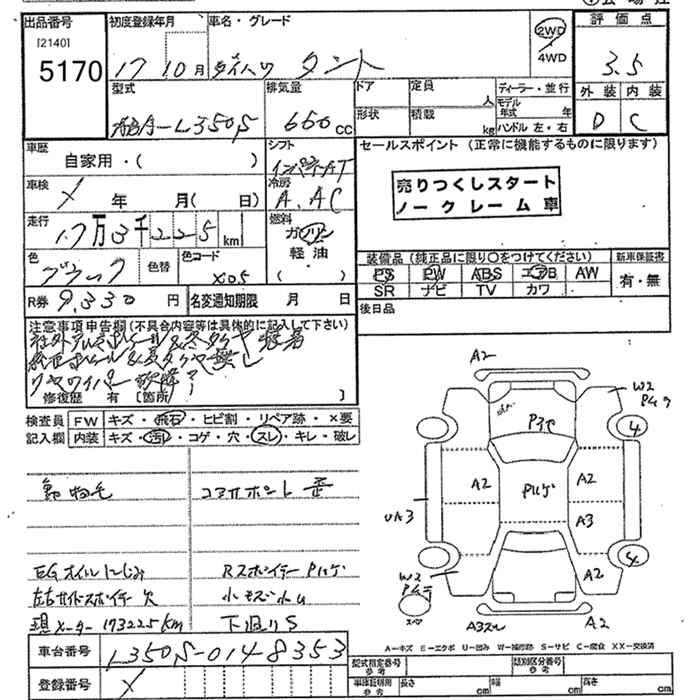 出品番号
[2140]
5170
初度登録年月
17年10月
車名・グレード
ダイハツ タント
2WD
4WD
評価点
3.5
外装 内装
D C
型式
L350S
排気量
660cc
ドア
定員 人
形状
積載 kg
ディーラー・並行
モデル年式 年
ハンドル 左・右
車歴
自家用・( )
シフト
インパネAT
冷房
A.AC
車検
X 年 月( 日)
走行
17万3千225km
燃料
ガソリン
軽油
( )
色
ブラック
色替
色コード
X05
R券 9,330円
名変通知期限 月 日
セールスポイント(正常に機能するものに限ります)
売りつくしスタート
ノークレーム車
装備品(純正品に限り○をつけてください)
PS PW ABS エアB AW
SR ナビ TV カワ
新車保証書
有・無
後日品
注意事項申告欄(不具合内容等は具体的に記入して下さい)
社外アルミホイール&冬タイヤ装着
純正ホイール&夏タイヤ無し
リヤワイパー故障?
修復歴 有[箇所 ]
検査員記入欄
FW キズ・飛石・ヒビ割・リペア跡・×要
内装 キズ・汚レ・コゲ・穴・スレ・キレ・破レ
動物毛
コアサポート歪
EGオイルにじみ
RスポイラーPハゲ
左右サイドスポイラ欠
小キズ小凹
現メーター173225Km
下廻りS
A2
W2
Pムラ
A2
A2
A2
A3
UA3
Pハゲ
4
4
W2
Pムラ
A2
スペア
A3スレ
A2
A−キズ E−エクボ U−凹み W−補修跡 S−サビ C−腐食 XX−交換済
車台番号
L350S-0148353
登録番号
X
型式指定番号 参考
類別区分番号 参考
車庫証明用 参考
長さ cm
幅 cm
高さ cm